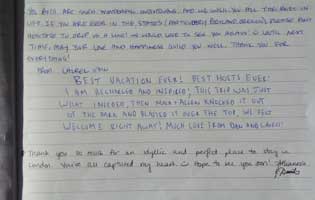 YOU BOTH ARE SUCH WONDERFUL INDIVIDUALS, AND WE WISH YOU ALL THE BEST IN
LIFE. IF YOU ARE EVER IN THE STATES (PARTICULARLY PORTLAND, OREGON), PLEASE DON'T
HESITATE TO DROP US A LINE! WE WOULD LOVE TO SEE YOU AGAIN! UNTIL NEXT
TIME, MAY OUR LOVE AND HAPPINESS GUIDE YOU WELL. THANK YOU FOR
EVERYTHING!
FROM LAUREL
BEST VACATION EVER! BEST HOSTS EVER!
I AM RECHARGED AND INSPIRED; THIS TRIP WAS JUST
WHAT I NEEDED, THEN MARK + ALLEN KNOCKED IT OUT
OF THE PARK AND BLASTED IT OVER THE TOP. WE FELT
WELCOME RIGHT AWAY! MUCH LOVE FROM DAN AND LAUREL!
Thank you so much for an idyllic and perfect place to stay in
London. You've all captured my heart. Hope to see you soon!